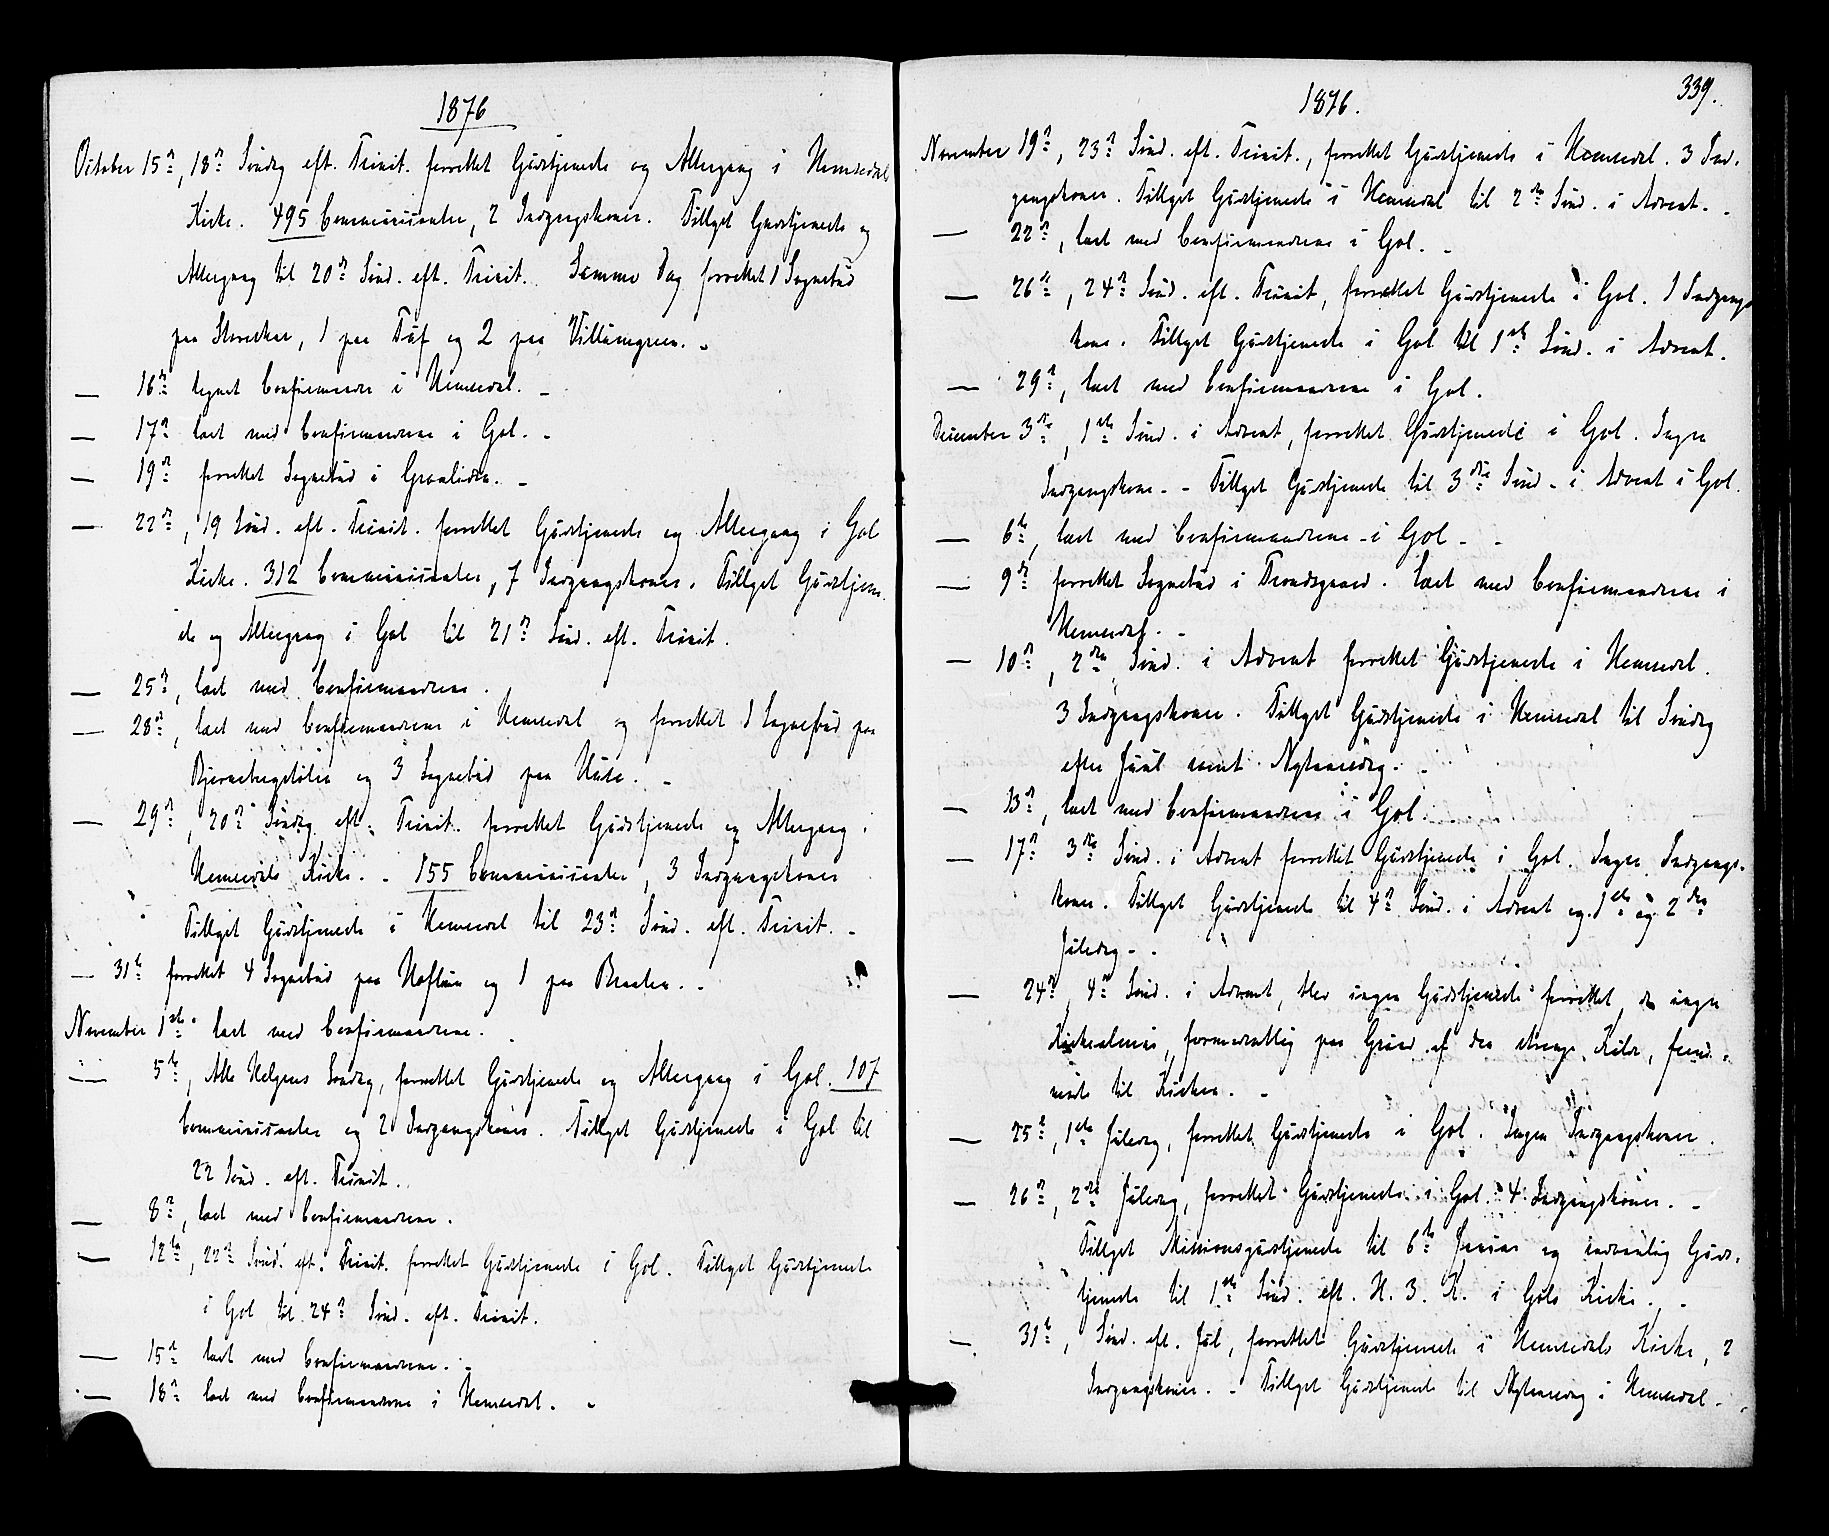 1876
October 15de, 18de Søndag eft. Trinit. forrettet Gudstjeneste og Altergang i Hemsedals
Kirke. 495 Communicanter, 2 Indgangskoner. Tillyst Gudstjeneste og
Altergang til 20de Sønd. eft. Trinit. Samme Dag forrettet 1 Sognebud
paa, 1 paa Tuf og 2 paa
— 16de tegnet Confirmander i Hemsedal. –
— 17de læst med Confirmanderne i Gol. –
— 19de forrettet Sognebud i Granlien. –
— 22de, 19 Sønd. eft. Trinit. forrettet Gudstjeneste og Altergang i Gol
Kirke. 312 Communicanter, 7 Indgangskoner. Tillyst Gudstjene-
ste og Altergang i Gol til 21de Sønd. eft. Trinit.
— 25de, læst med Confirmanderne.
— 28de, læst med Confirmanderne i Hemsedal og forrettet 1 Sognebud paa
og 3 Sognebud paa Huso. –
— 29de, 20de Søndag eft. Trinit. forrettet Gudstjeneste og Altergang i
Hemsedals Kirke. – 155 Communicanter, 3 Indgangskoner
Tillyst Gudstjeneste i Hemsedal til 23de Sønd. eft. Trinit. –
— 31te forrettet 4 Sognebud paa Haftun og 1 paa Braaten. –
November 1ste læst med Confirmanderne.
— 5te, Alle Helgens Søndag, forrettet Gudstjeneste og Altergang i Gol. 107
Communicanter og 2 Indgangskoner. Tillyst Gudstjeneste i Gol til
22 Sønd. eft. Trinit.
— 8de, læst med Confirmanderne.
— 12te, 22de Sønd. eft. Trinit. forrettet Gudstjeneste i Gol. Tillyst Gudstjeneste
i Gol til 24de Sønd. eft. Trinit.
— 15de læst med Confirmanderne. –
— 18de læst med Confirmanderne i Hemsedal. –
339.
1876.
November 19de, 23de Sønd. eft. Trinit., forrettet Gudstjeneste i Hemsedal. 3 Ind-
gangskoner. Tillyst Gudstjeneste i Hemsedal til 2den Sønd. i Advent. –
— 22de, læst med Confirmanderne i Gol. –
— 26de, 24de Sønd. eft. Trinit, forrettet Gudstjeneste i Gol. 1 Indgangs
kone. Tillyst Gudstjeneste i Gol til 1ste Sønd. i Advent.
— 29de, læst med Confirmanderne i Gol.
December 3die, 1ste Sønd. i Advent, forrettet Gudstjeneste i Gol. Ingen
Indgangskone. – Tillyst Gudstjeneste til 3die Sønd. i Advent i Gol.
— 6te, læst med Confirmanderne i Gol –
— 9de forrettet Sognebud i Trondsgaard. Læst med Confirmanderne i
Hemsedal. –
— 10de, 2den Sønd. i Advent forrettet Gudstjeneste i Hemsedal.
3 Indgangskoner. Tillyst Gudstjeneste i Hemsedal til Søndag
efter Juul samt Nytaarsdag. –
— 13de, læst med Confirmanderne i Gol.
— 17de 3die Sønd. i Advent forrettet Gudstjeneste i Gol. Ingen Indgangs-
koner. Tillyst Gudstjeneste til 4de Sønd. i Advent og 1ste og 2den
Juledag –
— 24de, 4de Sønd. i Advent, blev ingen Gudstjeneste forrettet, da ingen
Kirkealmue, formodentlig paa Grund af den strenge Kulde, fremd-
mødte til Kirken. –
— 25de, 1ste Juledag, forrettet Gudstjeneste i Gol. Ingen Indgangskoner.
— 26de, 2den Juledag, forrettet Gudstjeneste i Gol. 4 Indgangskoner. –
Tillyst Missionsgudstjeneste til 6te Januar og ordentlig Guds-
tjeneste til 1ste Sønd. eft. H. 3. K. i Gols Kirke. –
— 31te, Sønd. eft. Jul, forrettet Gudstjeneste i Hemsedals Kirke, 2
Indgangskoner. – Tillyst Gudstjeneste til Nytaarsdag i Hemsedal. –